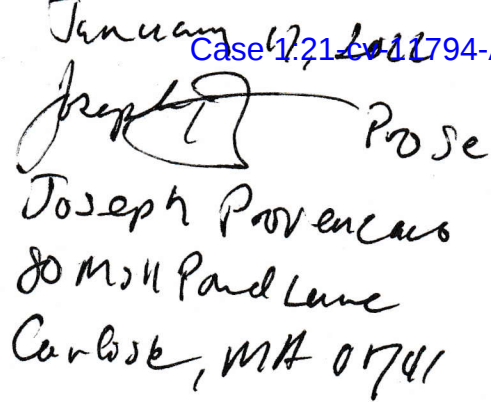 January 17, 2022
Case 1:21-cv-11794-
Joseph
Pro Se
Joseph Provencano
80 Mill Pond Lane
Carlisle, MA 01741